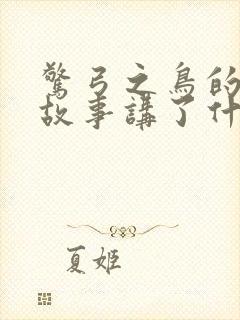 驚弓之鳥的
故事講了什
夏姬